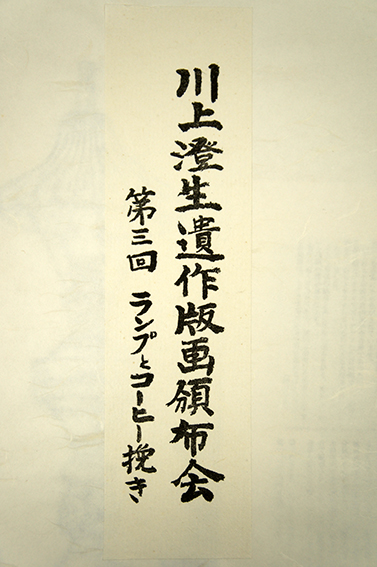 川上澄生遺作版画頒布会
第三回 ランプとコーヒー挽き